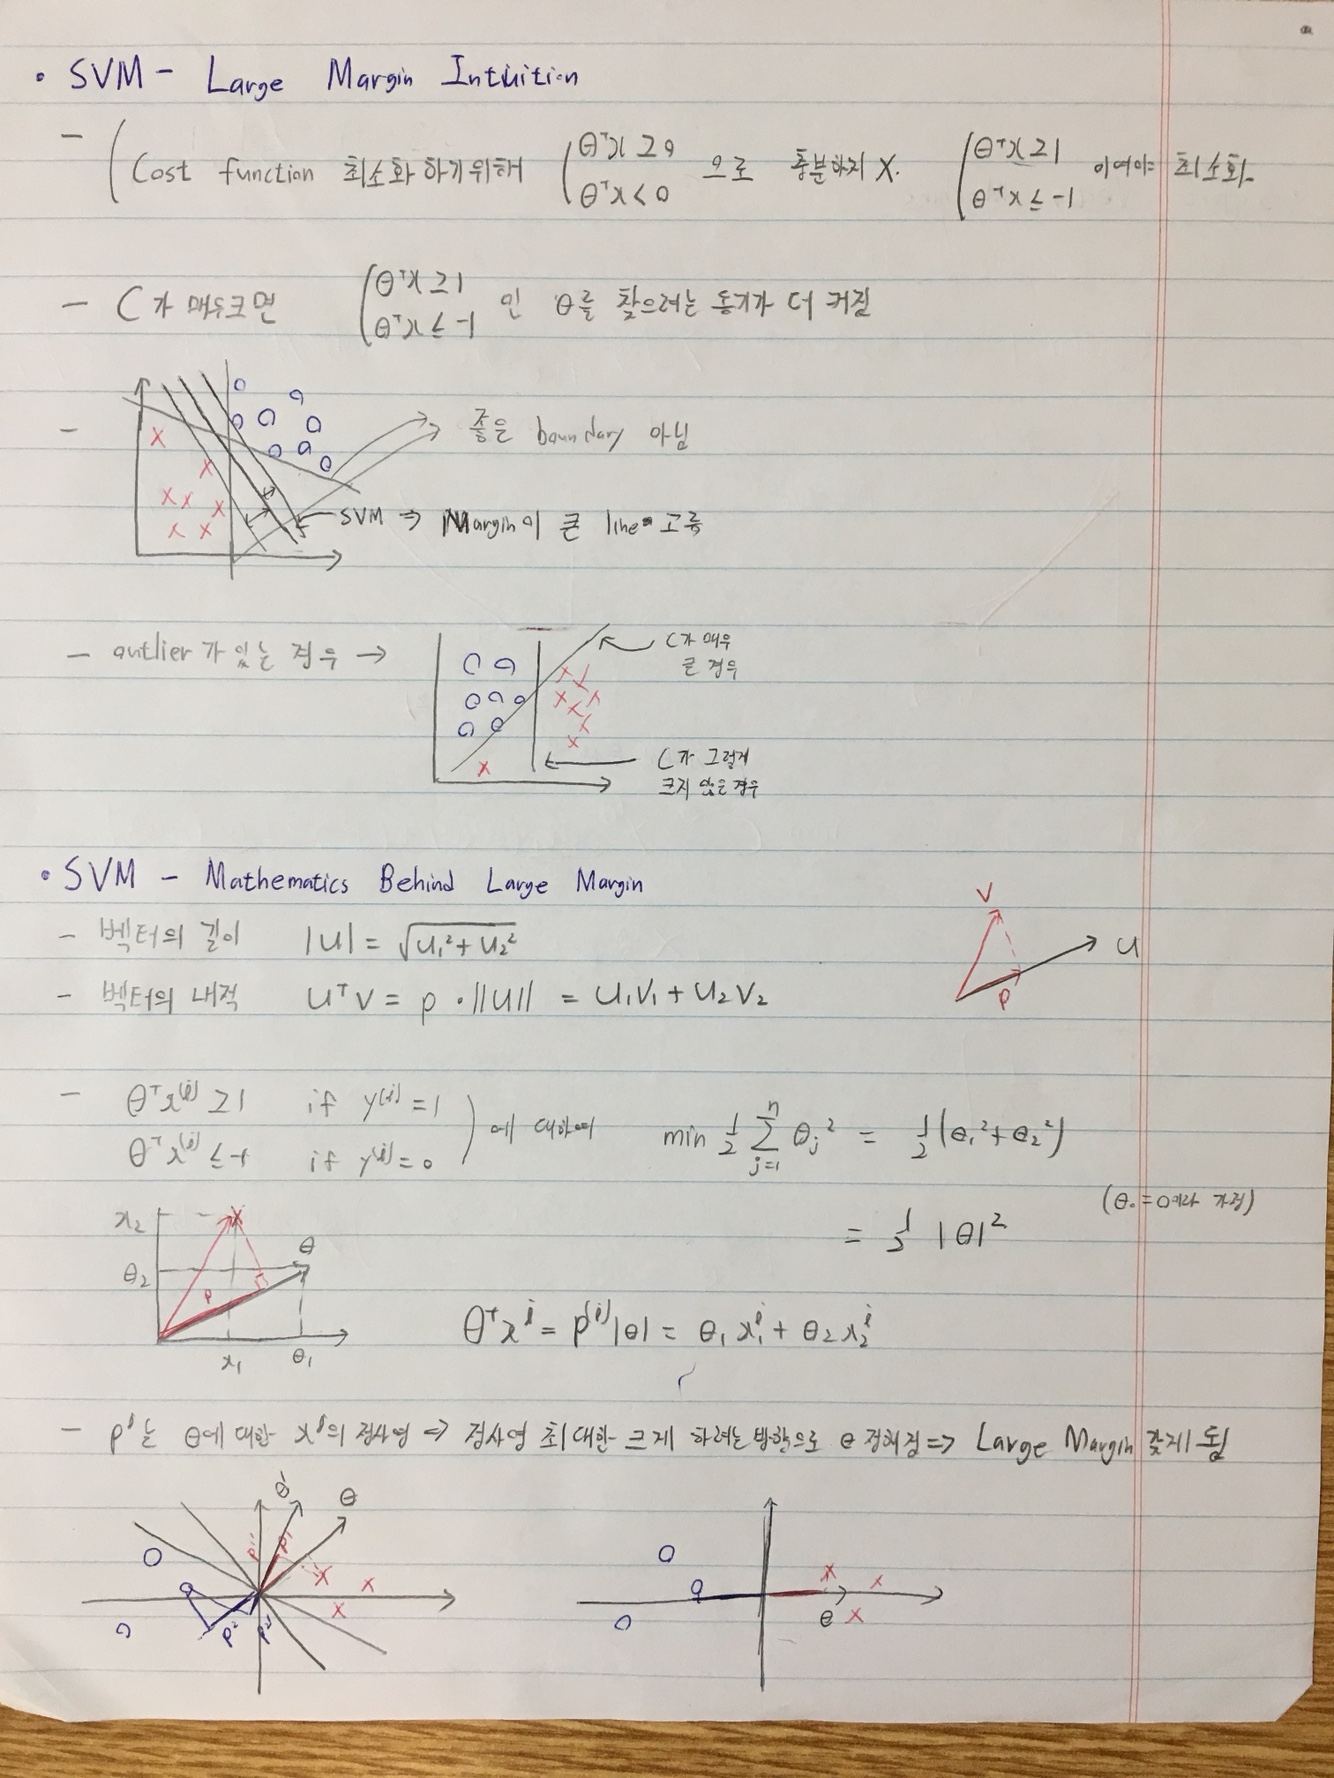 • SVM - Large Margin Intuition
- ( Cost function 최소화 하기위해 ( θᵀx ≥ 0 으로 충분하지 X. ( θᵀx ≥ 1 이여야 최소화
θᵀx < 0 θᵀx ≤ -1
- C가 매우크면 ( θᵀx ≥ 1 인 θ를 찾으려는 동기가 더 커짐
θᵀx ≤ -1
- 좋은 boundary 아님
SVM ⇒ Margin이 큰 line 고름
- outlier가 있는 경우 →
C가 매우
큰 경우
C가 그렇게
크지 않은 경우
• SVM - Mathematics Behind Large Margin
- 벡터의 길이 |u| = √(u₁² + u₂²)
V
u
p
- 벡터의 내적 uᵀv = p · ||u|| = u₁v₁ + u₂v₂
- θᵀx⁽ⁱ⁾ ≥ 1 if y⁽ⁱ⁾ = 1 ) 에 대하여 min ½ Σⱼ₌₁ⁿ θⱼ² = ½(θ₁² + θ₂²)
θᵀx⁽ⁱ⁾ ≤ -1 if y⁽ⁱ⁾ = 0
(θ₀ = 0이라 가정)
= ½ |θ|²
x₂
θ
θ₂
p
x₁ θ₁
θᵀxⁱ = p⁽ⁱ⁾|θ| = θ₁x₁ⁱ + θ₂x₂ⁱ
- pⁱ는 θ에 대한 xⁱ의 정사영 ⇒ 정사영 최대한 크게 하려는 방향으로 θ 정해짐 ⇒ Large Margin 갖게 됨
θ' θ
p¹' p¹
p² p²'
θ